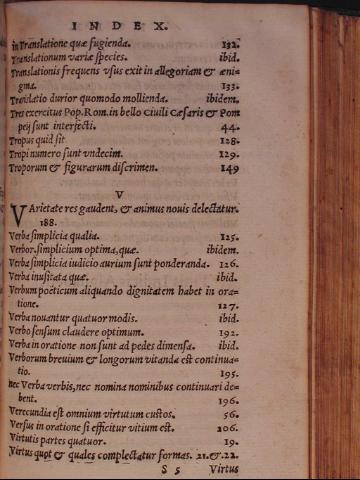 INDEX.
in Translatione quæ fugienda. 132.
Translationum variæ species. ibid.
Translationis frequens vsus exit in allegoriam & æni-
gma. 133.
Translatio durior quomodo mollienda. ibidem.
Tres exercitus Pop. Rom. in bello Ciuili Cæsaris & Pom
peij sunt interfecti. 44.
Tropus quid sit 128.
Tropi numero sunt vndecim. 129.
Troporum & figurarum discrimen. 149
V
VArietate res gaudent, & animus nouis delectatur.
188.
Verba simplicia qualia. 125.
Verbor. simplicium optima, quæ. ibidem.
Verba simplicia iudicio aurium sunt ponderanda. 126.
Verba inusitata quæ. ibid.
Verbum poëticum aliquando dignitatem habet in ora-
tione. 127.
Verba nouantur quatuor modis. ibid.
Verbo sensum claudere optimum. 192.
Verba in oratione non sunt ad pedes dimensa. ibid.
Verborum breuium & longorum vitanda est continua-
tio. 195.
Nec Verba verbis, nec nomina nominibus continuari de-
bent. 196.
Verecundia est omnium virtutum custos. 56.
Versus in oratione si efficitur vitium est. 206.
Virtutis partes quatuor. 19.
Virtus quot & quales complectatur formas. 21. & 22.
S 5 Virtus